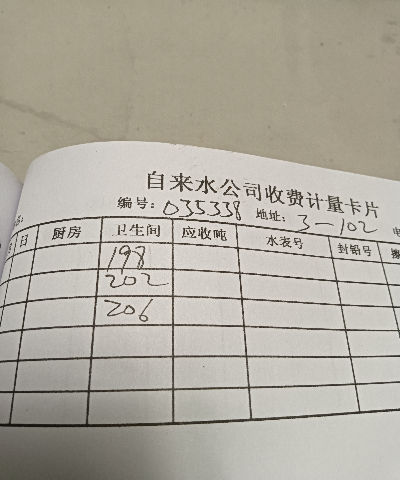 自来水公司收费计量卡片
编号: 035338 地址: 3-102
日 厨房 卫生间 应收吨 水表号 封铅号
198
202
206